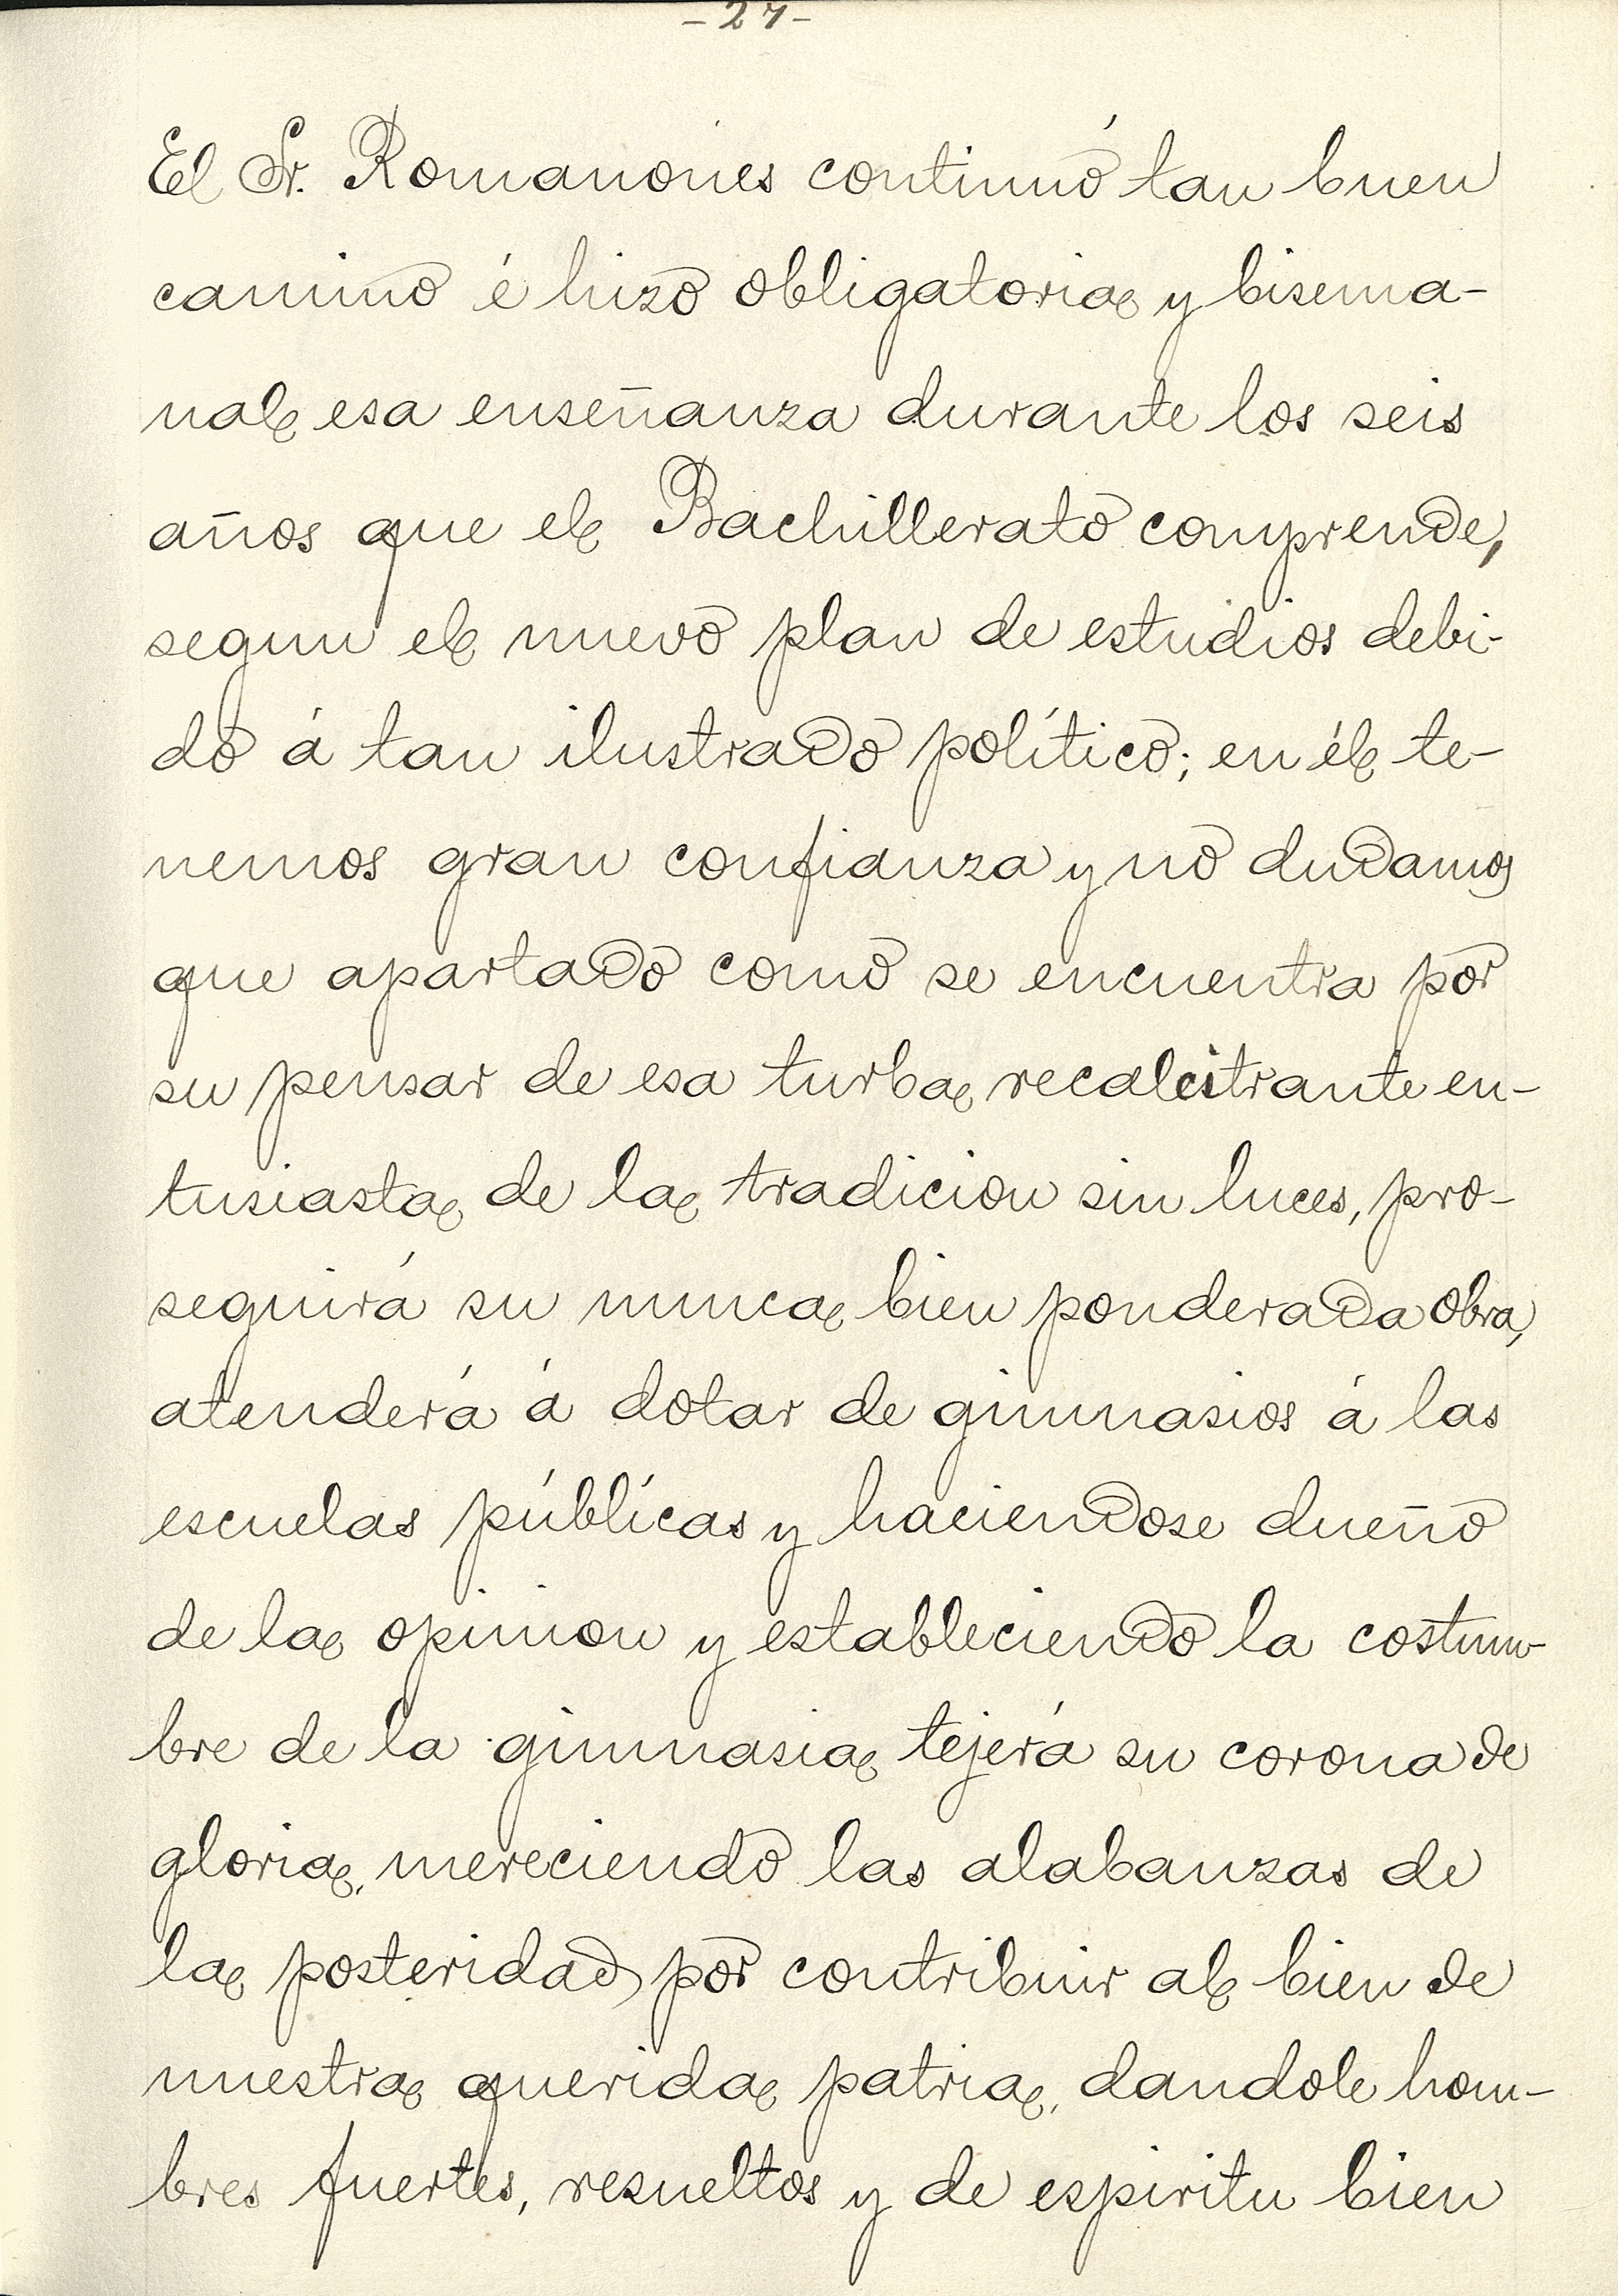 -27-
El Sr. Romanones continuó tan buen
camino é hizo obligatoria y bisema-
nal esa enseñanza durante los seis
años que el Bachillerato comprende,
segun el nuevo plan de estudios debi-
do á tan ilustrado político; en él te-
nemos gran confianza y no dudamos
que apartado como se encuentra por
su pensar de esa turba recalcitrante en-
tusiasta de la tradicion sin luces, pro-
seguirá su nunca bien ponderada obra,
atenderá á dotar de gimnasios á las
escuelas públicas y haciendose dueño
de la opinion y estableciendo la costum-
bre de la gimnasia tejerá su corona de
gloria, mereciendo las alabanzas de
la posteridad por contribuir al bien de
nuestra querida patria, dandole hom-
bres fuertes, resueltos y de espiritu bien